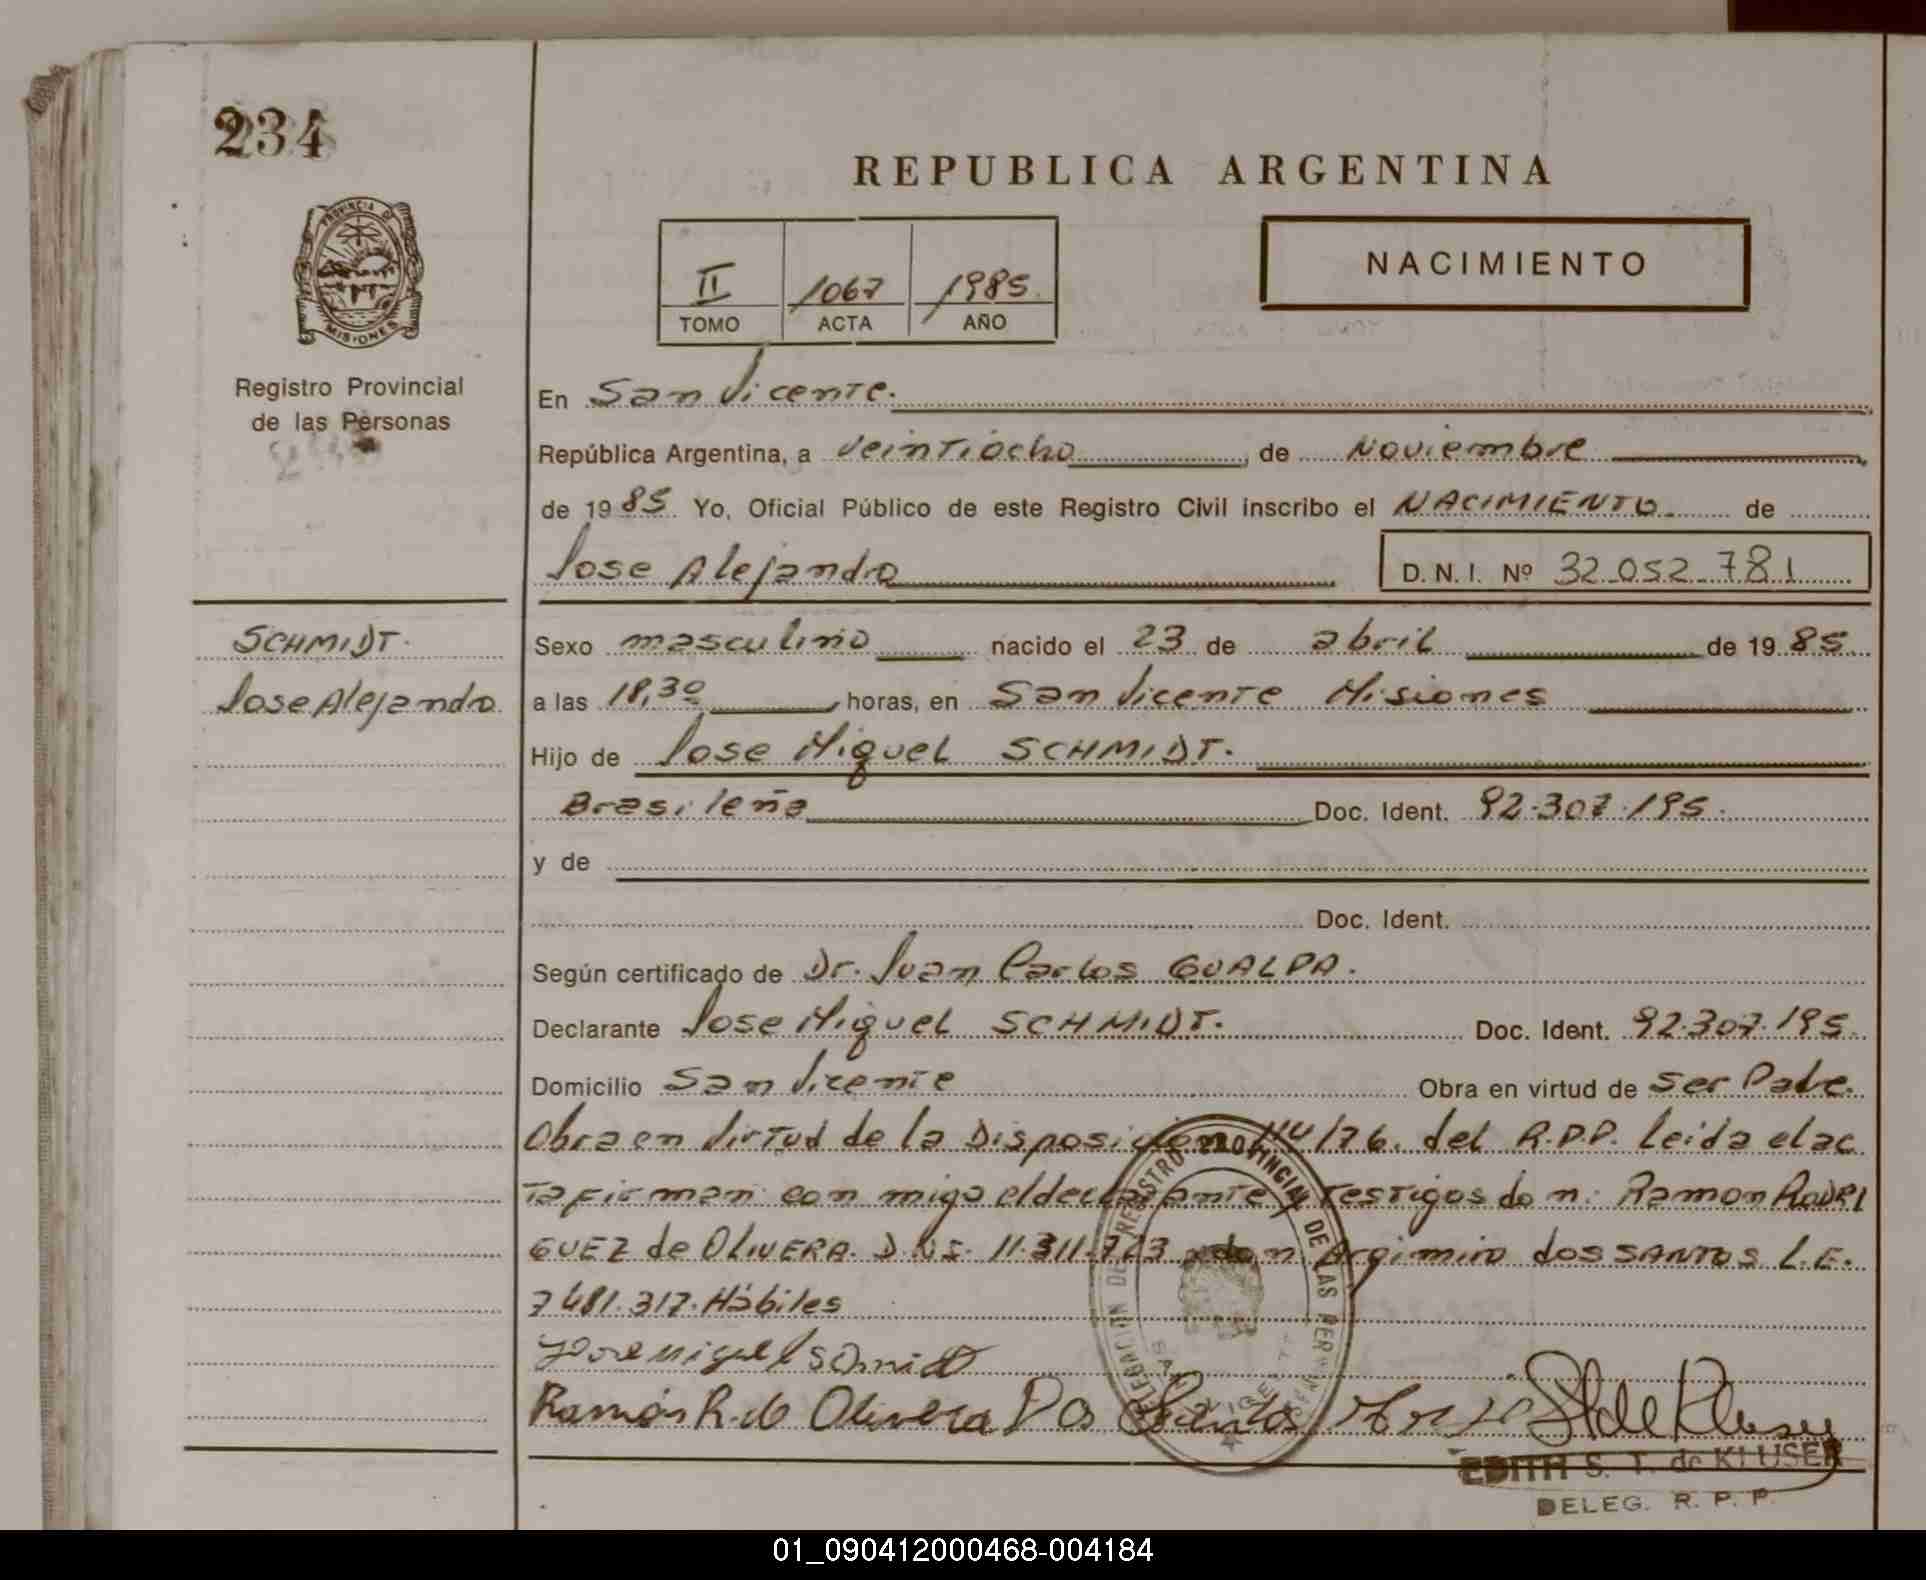 234
REPUBLICA ARGENTINA
PROVINCIA DE
MISIONES
II 1067 1985
TOMO ACTA AÑO
NACIMIENTO
Registro Provincial
de las Personas
En San Vicente.
República Argentina, a veintiocho, de Noviembre
de 1985. Yo, Oficial Público de este Registro Civil inscribo el NACIMIENTO de
Jose Alejandro D. N. I. Nº 32.052.781
SCHMIDT.
Jose Alejandro
Sexo masculino nacido el 23 de abril de 1985
a las 18,30 horas, en San Vicente Misiones
Hijo de Jose Miguel SCHMIDT.
Brasileña Doc. Ident. 92.307.195.
y de
Doc. Ident.
Según certificado de Dr. Juan Carlos GUALPA.
Declarante Jose Miguel SCHMIDT. Doc. Ident. 92.307.195.
Domicilio San Vicente Obra en virtud de ser Padre.
Obra en virtud de la Disposicion /76. del R.P.P. leida el ac
ta firman con migo el declarante, testigos do n: Ramon RODRI
GUEZ de OLIVERA. D.N.I. 11.311.723 don Argimiro dos SANTOS L.E.
7481.317. Hábiles
Jose Miguel Schmidt
Ramón R. de Olivera Dos Santos
DELEGACION DE REGISTRO PROVINCIAL DE LAS PERSONAS
SAN VICENTE
EDITH S. T. de KLUSER
DELEG. R. P. P.
01_090412000468-004184